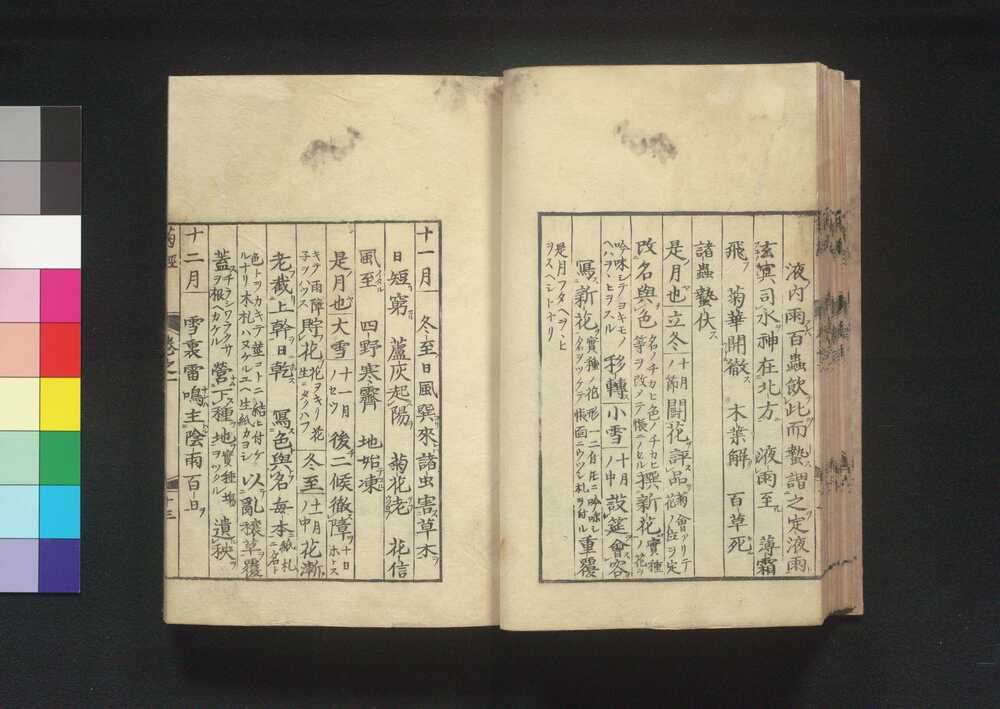 液内雨百蟲飲此而蟄謂之定液雨
玄冥司水神在北方 液雨至 薄霜
飛 菊華開徹 木葉解 百草死
諸蟲蟄伏
是月也立冬 十月ノ節 鬪花評品
改名與色 名ノチカヒ色ノチカヒ等ヲ改メテ帳ニノセル 撰新花 實種ノ花ヲ
吟味シテヨキモノヘハヲヽヒヲスル 移轉 小雪 十月ノ中 設筵會容
寫新花 實種ノ花形一二 名ヲツケテ帳面ニウツシ札ヲ付ル 重覆
是月フタヘヲヽヒヲスヘシトナリ
十一月 冬至日風巽來諸虫害草木
日短窮 蘆灰起陽 菊花老 花信
風至 四野寒霽 地始凍
是月也大雪 十一月ノセツ 後二候徹障 十日ホトス
キテ雨障子ヲノソス 貯花 花ヲキリ花生ニタクハフ 冬至 十一月ノ中 花漸
老截上幹日乾 寫色與名每本 紙札ニ名ト
色トヲカキテ莖コトニ結ヒ付ケルナリ木札ハヌケルユヘ生紙カヨシ 以亂穰草覆
蓋 スチヲシワラクサヲ根ヘカケル 營下種地 實種場ヲツクル 遺秧
十二月 雪裏雷鳴主陰雨百日
菊經 卷之一 十三